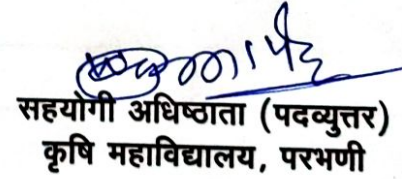 सहयोगी अधिष्ठाता (पदव्युत्तर)
कृषि महाविद्यालय, परभणी